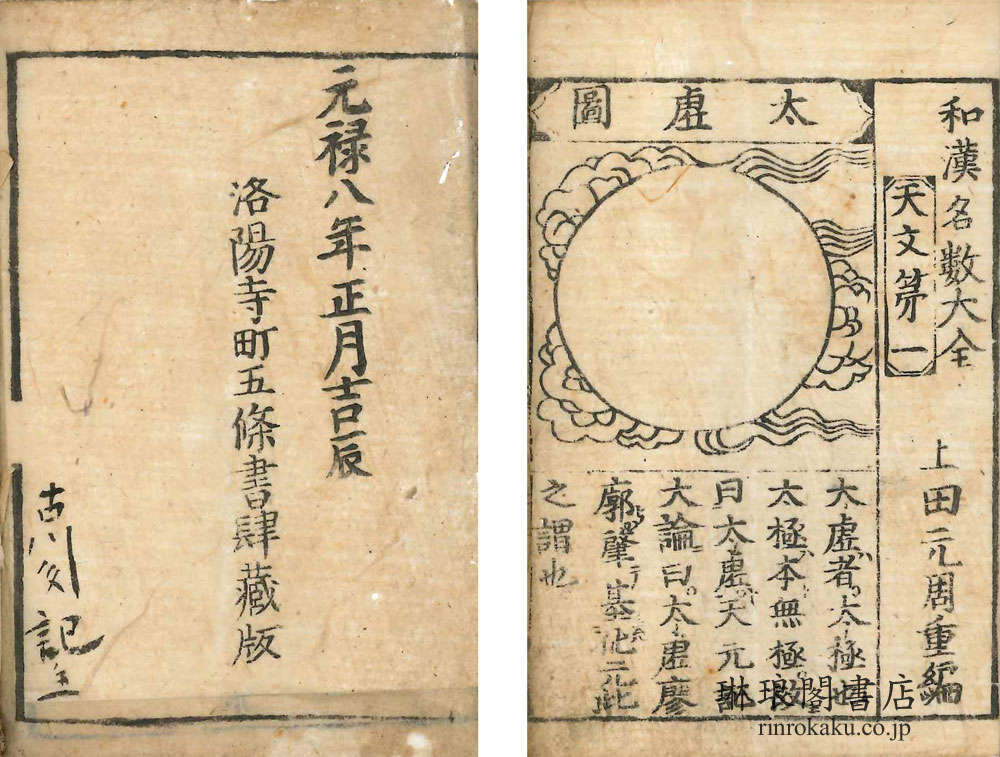 和漢名數大全 上田元周重編
天文第一
太虛圖
太虛者太極也
太極本無極故
曰太虛天元記
大論曰太虛廖
廓肇基化元此
之謂也
元禄八年正月吉辰
洛陽寺町五條書肆藏版
古川
琳琅閣書店
rinrokaku.co.jp